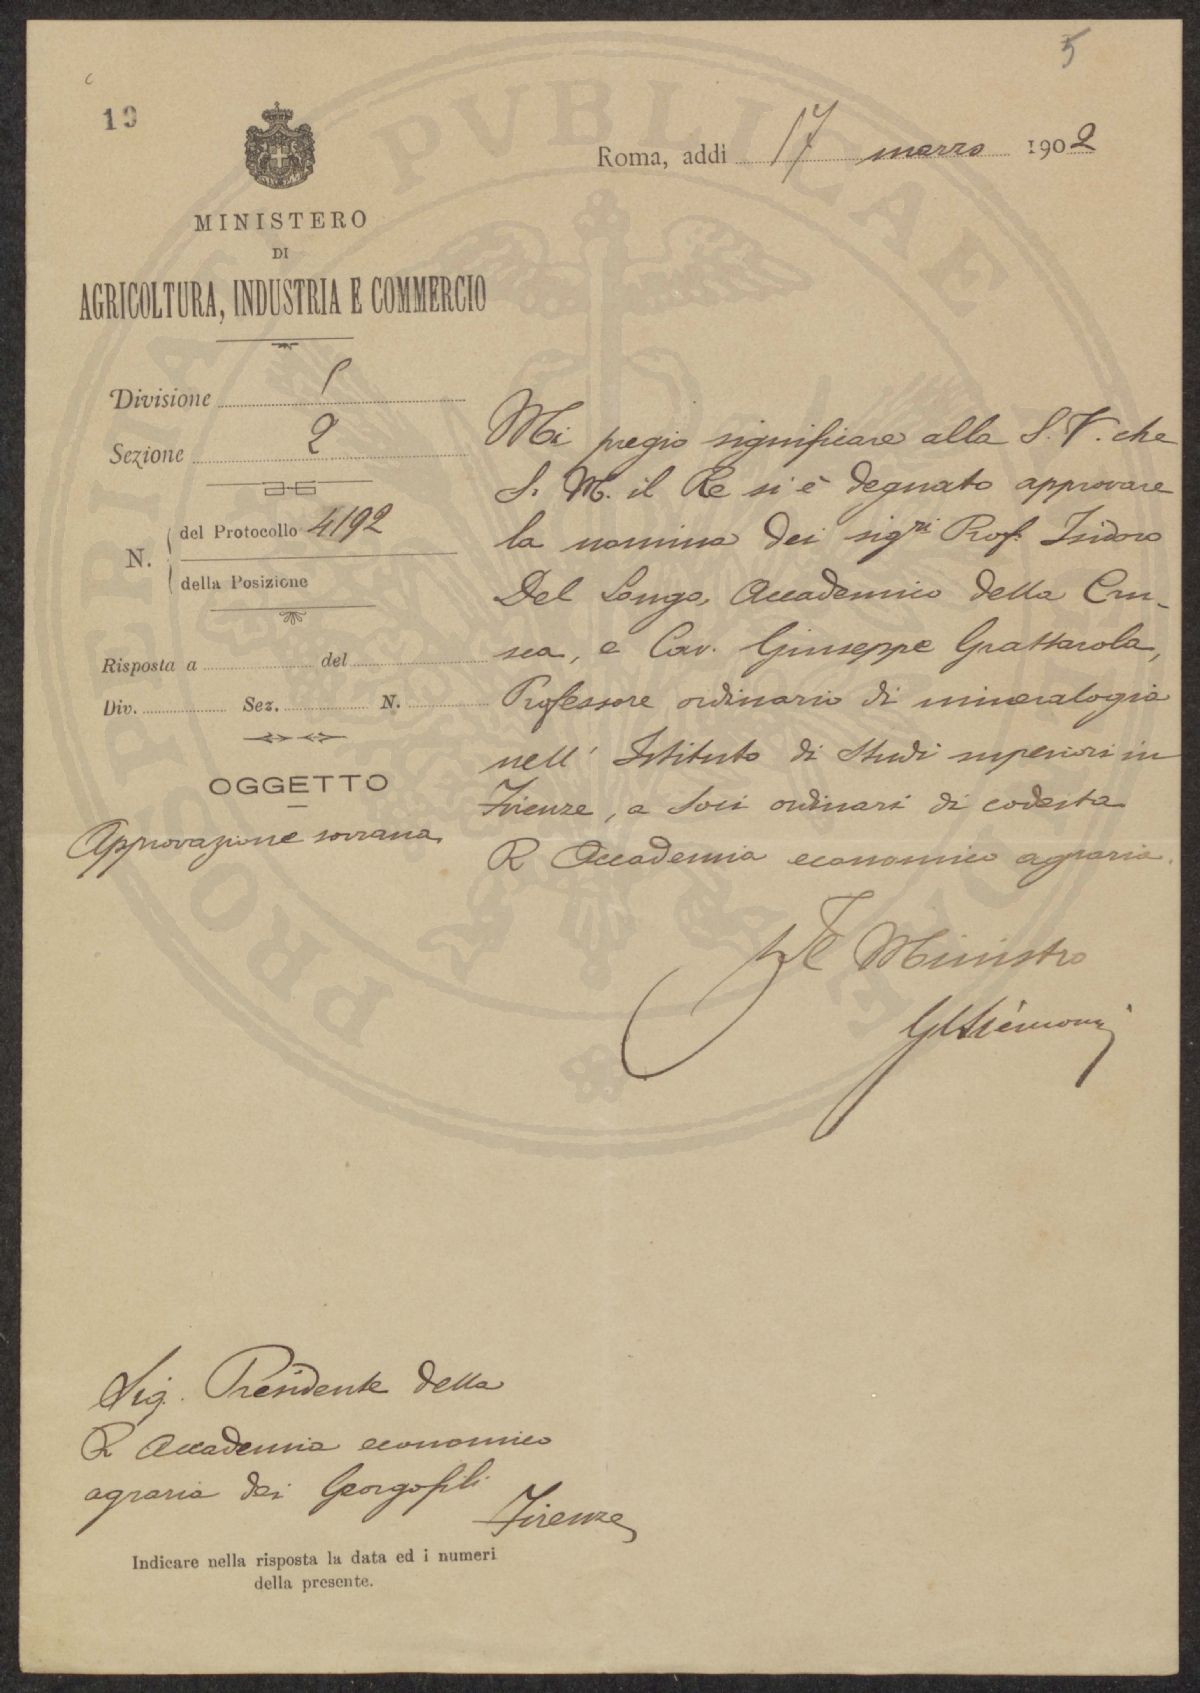 5
19
Roma, addì 17 marzo 1902
MINISTERO
DI
AGRICOLTURA, INDUSTRIA E COMMERCIO
Divisione 1
Sezione 2
N. del Protocollo 4192
della Posizione
Risposta a del
Div. Sez. N.
OGGETTO
Approvazione sovrana
Mi pregio significare alla S. V. che
S. M. il Re si è degnato approvare
la nomina dei sigri Prof. Isidoro
Del Lungo, Accademico della Cru-
sca, e Cav. Giuseppe Grattarola,
Professore ordinario di mineralogia
nell' Istituto di Studi superiori in
Firenze, a Soci ordinari di codesta
R Accademia economico agraria.
Il Ministro
Sig. Presidente della
R Accademia economico
agraria dei Georgofili
Firenze
Indicare nella risposta la data ed i numeri
della presente.
PROPRIAE PVBLICAE